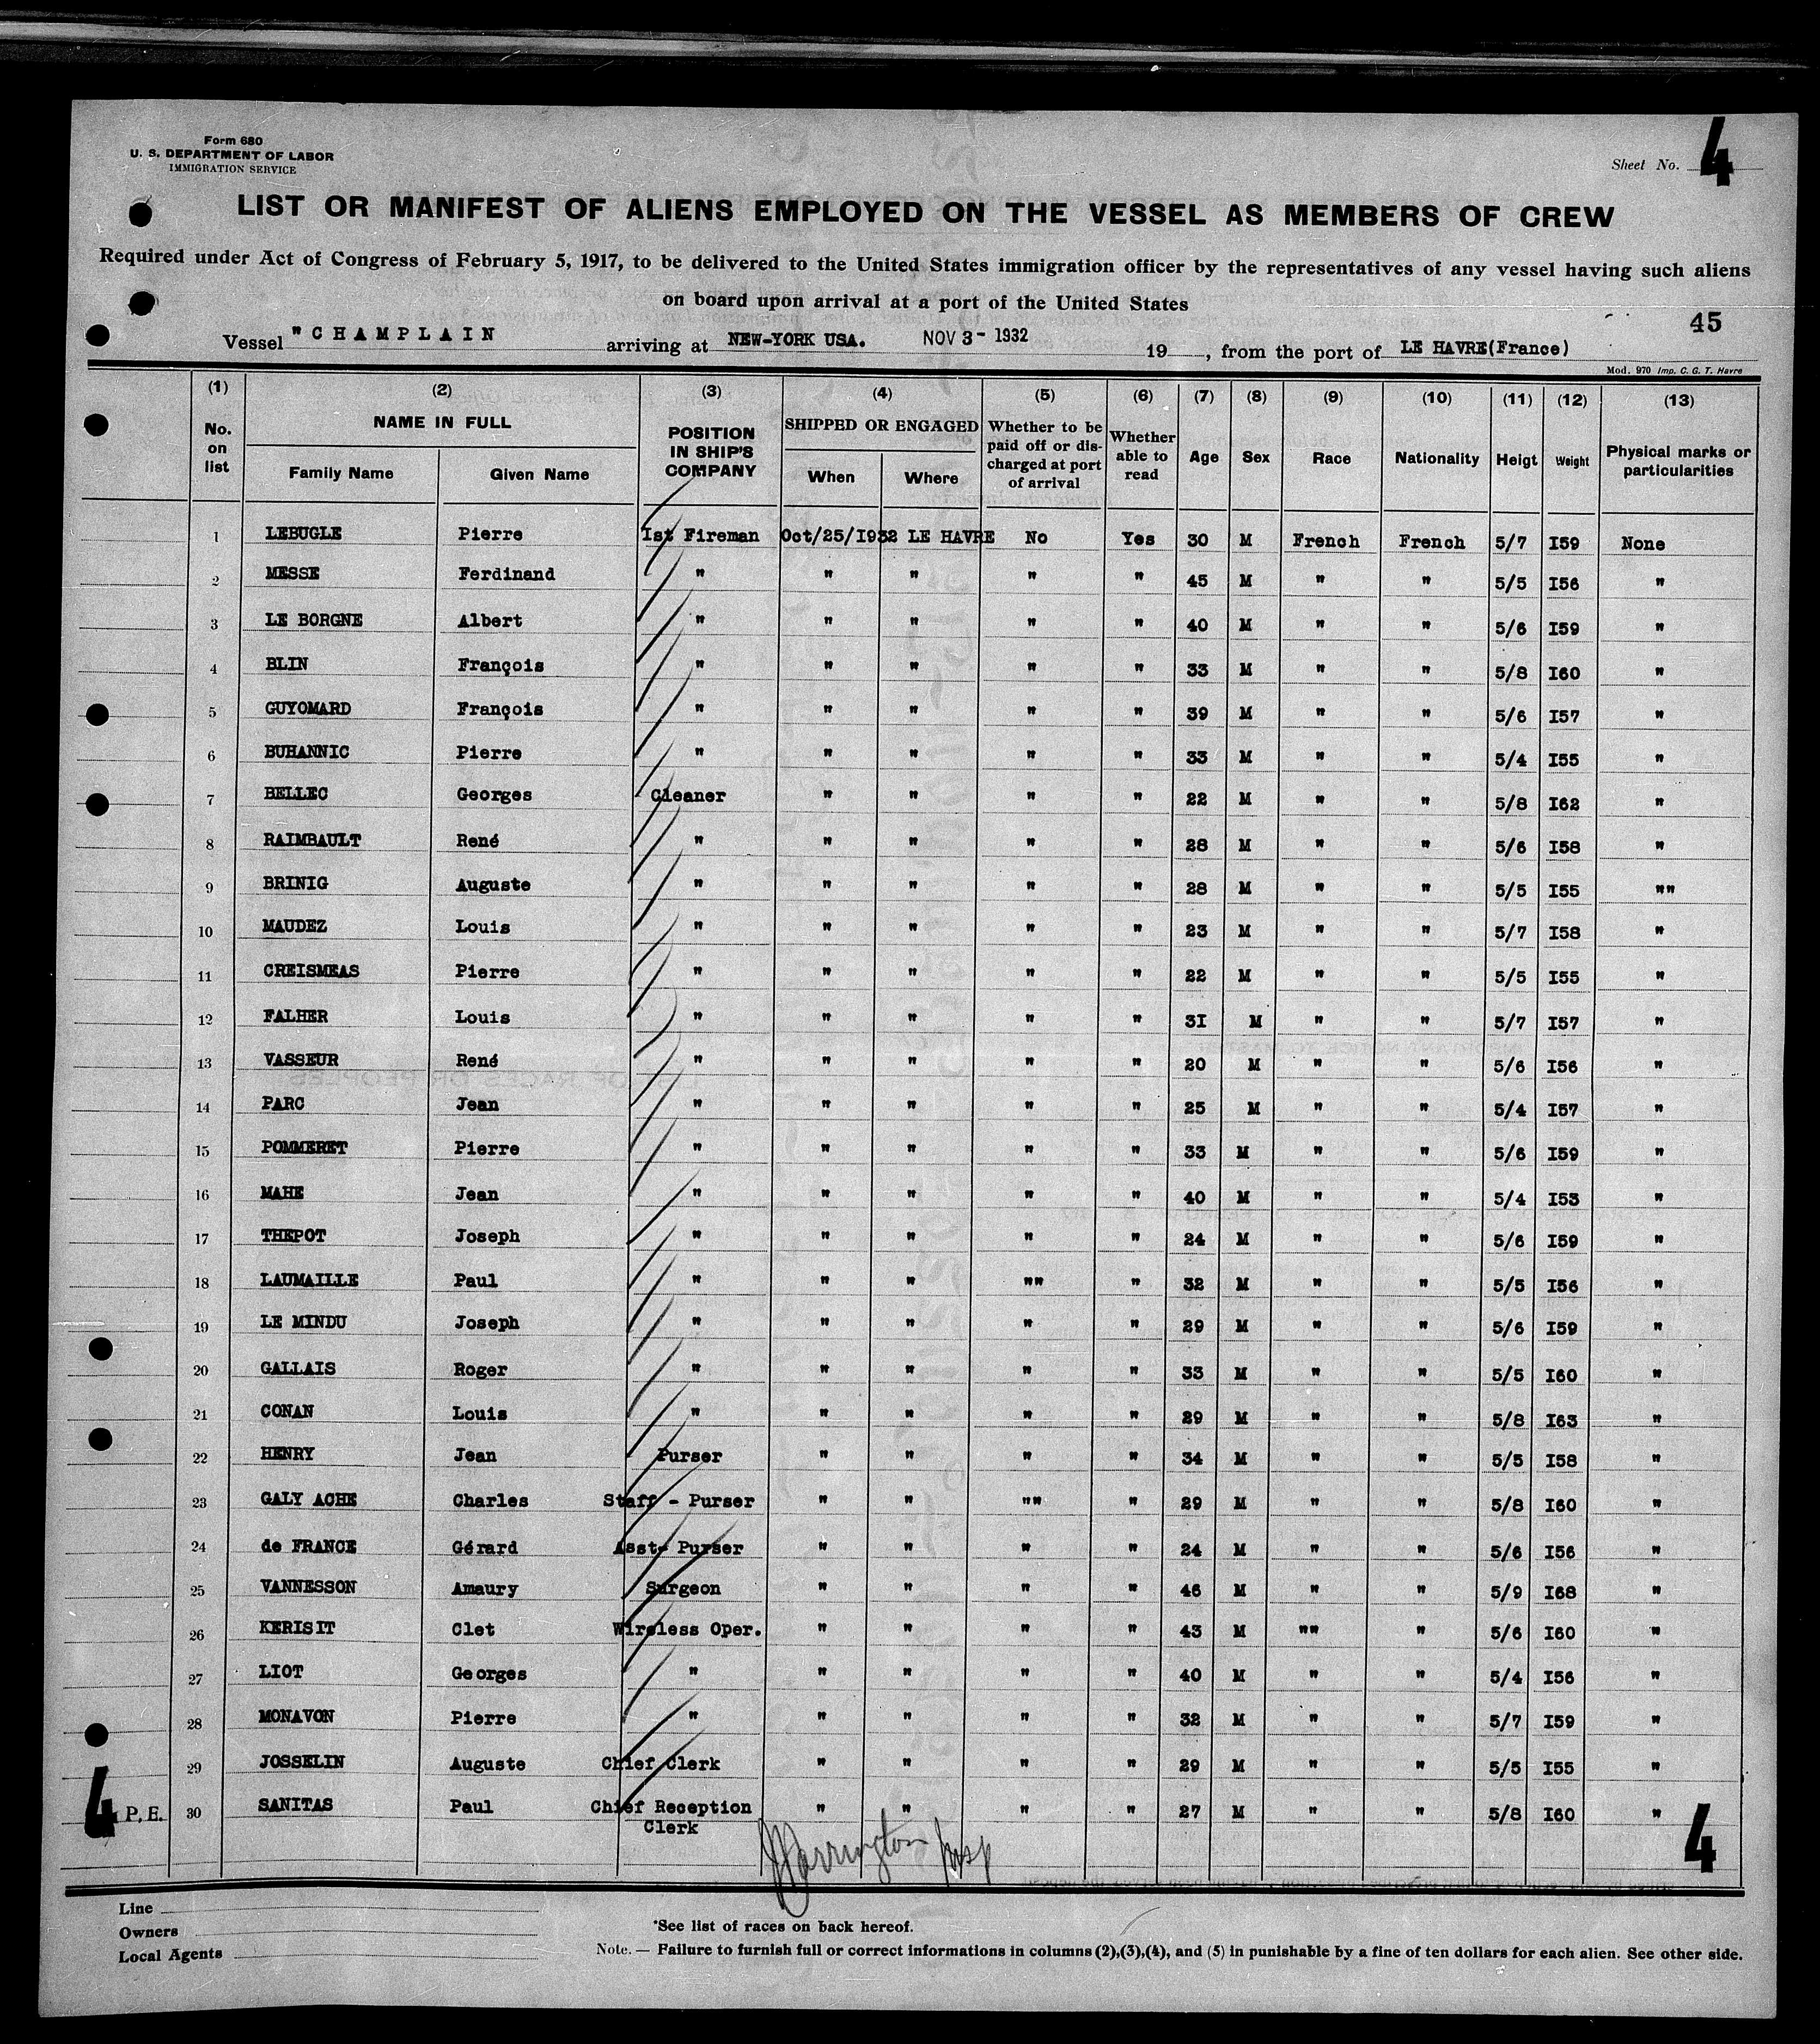 Form 680
U. S. DEPARTMENT OF LABOR
IMMIGRATION SERVICE
Sheet No. 4
LIST OR MANIFEST OF ALIENS EMPLOYED ON THE VESSEL AS MEMBERS OF CREW
Required under Act of Congress of February 5, 1917, to be delivered to the United States immigration officer by the representatives of any vessel having such aliens
on board upon arrival at a port of the United States
45
Vessel "CHAMPLAIN arriving at NEW-YORK USA. NOV 3- 1932 19 , from the port of LE HAVRE(France)
Mod. 970 Imp. C. G. T. Havre
(1) (2) (3) (4) (5) (6) (7) (8) (9) (10) (11) (12) (13)
No. on list NAME IN FULL Family Name Given Name POSITION IN SHIP'S COMPANY SHIPPED OR ENGAGED When Where Whether to be paid off or discharged at port of arrival Whether able to read Age Sex Race Nationality Heigt Weight Physical marks or particularities
1 LEBUGLE Pierre Ist Fireman Oct/25/I932 LE HAVRE No Yes 30 M French French 5/7 I59 None
2 MESSE Ferdinand " " " " " 45 M " " 5/5 I56 "
3 LE BORGNE Albert " " " " " 40 M " " 5/6 I59 "
4 BLIN François " " " " " 33 M " " 5/8 I60 "
5 GUYOMARD François " " " " " 39 M " " 5/6 I57 "
6 BUHANNIC Pierre " " " " " 33 M " " 5/4 I55 "
7 BELLEC Georges Cleaner " " " " 22 M " " 5/8 I62 "
8 RAIMBAULT René " " " " " 28 M " " 5/6 I58 "
9 BRINIG Auguste " " " " " 28 M " " 5/5 I55 ""
10 MAUDEZ Louis " " " " " 23 M " " 5/7 I58 "
11 CREISMEAS Pierre " " " " " 22 M " " 5/5 I55 "
12 FALHER Louis " " " " " 3I M " " 5/7 I57 "
13 VASSEUR René " " " " " 20 M " " 5/6 I56 "
14 PARC Jean " " " " " 25 M " " 5/4 I57 "
15 POMMERET Pierre " " " " " 33 M " " 5/6 I59 "
16 MAHE Jean " " " " " 40 M " " 5/4 I53 "
17 THEPOT Joseph " " " " " 24 M " " 5/6 I59 "
18 LAUMAILLE Paul " " " "" " 32 M " " 5/5 I56 "
19 LE MINDU Joseph " " " " " 29 M " " 5/6 I59 "
20 GALLAIS Roger " " " " " 33 M " " 5/5 I60 "
21 CONAN Louis " " " " " 29 M " " 5/8 I63 "
22 HENRY Jean Purser " " " " 34 M " " 5/5 I58 "
23 GALY ACHE Charles Staff - Purser " " "" " 29 M " " 5/8 I60 "
24 de FRANCE Gérard Asst- Purser " " " " 24 M " " 5/6 I56 "
25 VANNESSON Amaury Surgeon " " " " 46 M " " 5/9 I68 "
26 KERISIT Clet Wireless Oper. " " " " 43 M "" " 5/6 I60 "
27 LIOT Georges " " " " " 40 M " " 5/4 I56 "
28 MONAVON Pierre " " " " " 32 M " " 5/7 I59 "
29 JOSSELIN Auguste Chief Clerk " " " " 29 M " " 5/5 I55 "
4 P. E. 30 SANITAS Paul Chief Reception " " " " 27 M " " 5/8 I60 "
Clerk
4
Line
Owners
Local Agents
*See list of races on back hereof.
Note. — Failure to furnish full or correct informations in columns (2),(3),(4), and (5) in punishable by a fine of ten dollars for each alien. See other side.